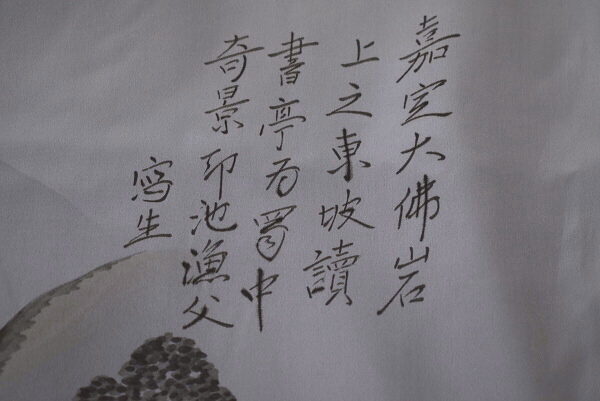 嘉定大佛岩
上之東坡讀
書亭为蜀中
奇景印池漁父
寫生